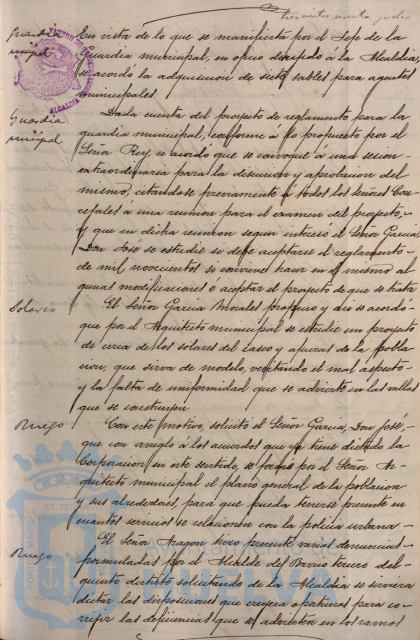 Guardia
municipal
En vista de lo que se manifiesta por el Jefe de la
Guardia municipal, en oficio dirigido á la Alcaldia,
se acordó la adquisicion de siete sables para agentes
municipales.
Guardia
municipal
Dada cuenta del proyecto de reglamento para la
guardia municipal, conforme á lo propuesto por el
Señor Rey, se acordó que se convoque á una sesion
extraordinaria para la discusion y aprobacion del
mismo, citandose previamente á todos los señores Con-
cejales á una reunion para el examen del proyecto,
y que en dicha reunion segun interesó el Señor Garcia
Don José se estudie si debe aceptarse el reglamento
de mil novecientos se conviene hacer en el mismo al
gunas modificaciones ó aceptar el proyecto de que se trata
Solares
El Señor Garcia Morales propuso y así se acordó
que por el Arquitecto municipal se estudie un proyecto
de cerca de los solares del casco y afueras de la pobla
cion, que sirva de modelo, evitando el mal aspecto
y la falta de uniformidad que se advierte en las vallas
que se construyen
Ruego
Con este motivo, solicitó el Señor Garcia, Don José,
que con arreglo á los acuerdos que ya tiene dictado la
Corporacion en este sentido, se forme por el Señor Ar-
quitecto municipal el plano general de la poblacion
y sus alrededores, para que pueda tenerse presente en
cuantos servicios se relacionen con la policia urbana
Ruego
El Señor Aragon hizo presente varias denuncias
formuladas por el Alcalde del Barrio tercero del
quinto distrito solicitando de la Alcaldia se sirviera
dictar las disposiciones que creyera oportunas para co-
rregir las deficiencias que se advierten en los ramos